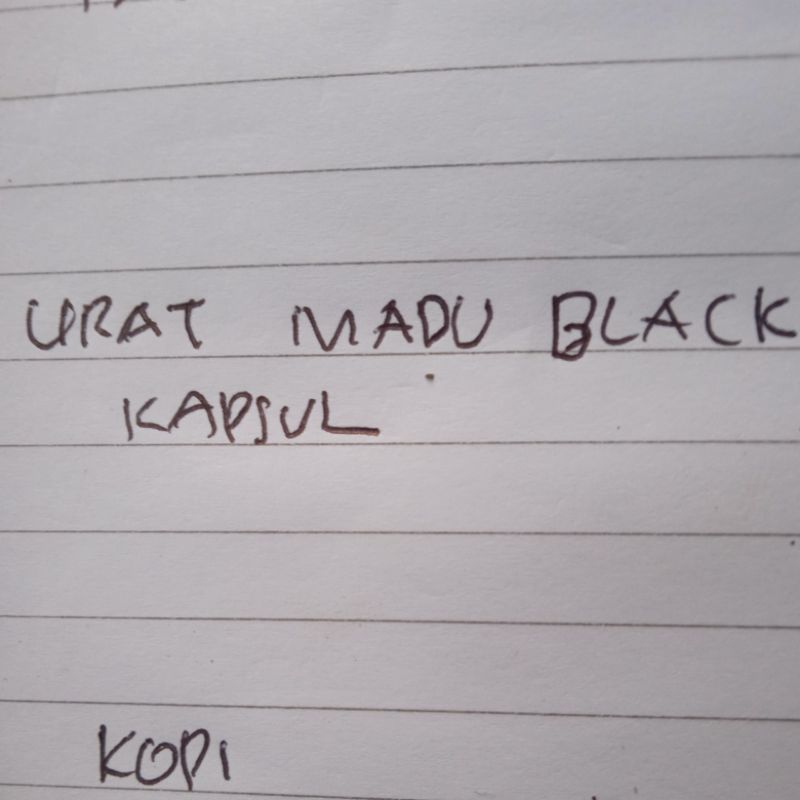 URAT MADU BLACK
KAPSUL
KOPI